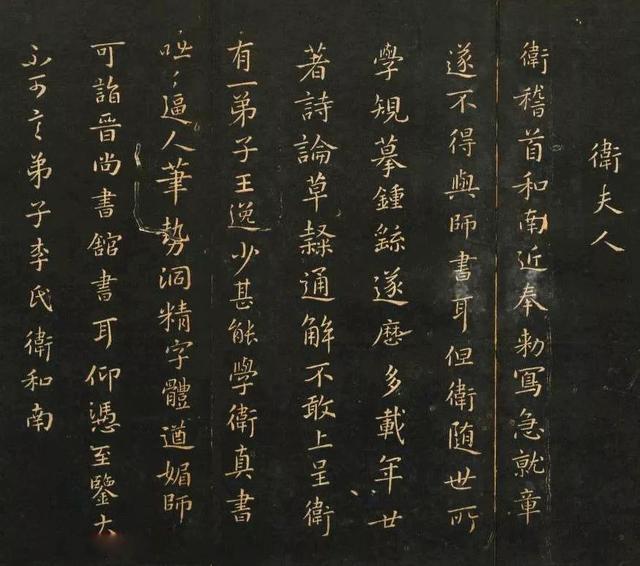 衛夫人
衛稽首和南近奉勅寫急就章
遂不得與師書耳但衛随世所
學規摹鍾繇遂歷多載年廿
著詩論草隸通解不敢上呈衛
有一弟子王逸少甚能學衛真書
咄咄逼人筆勢洞精字體遒媚師
可詣晉尚書館書耳仰憑至鑒大
不可言弟子李氏衛和南